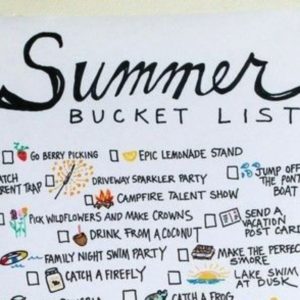 Summer
BUCKET LIST
GO BERRY PICKING
EPIC LEMONADE STAND
JUMP OFF
THE PONT
BOAT
ATCH
RENT TRAP
DRIVEWAY SPARKLER PARTY
CAMPFIRE TALENT SHOW
PICK WILDFLOWERS AND MAKE CROWNS
SEND A
VACATION
POST CARD
DRINK FROM A COCONUT
FAMILY NIGHT SWIM PARTY
MAKE THE PERFEC
S'MORE
CATCH A FIREFLY
LAKE SWIM
AT DUSK
CATCH A FROG